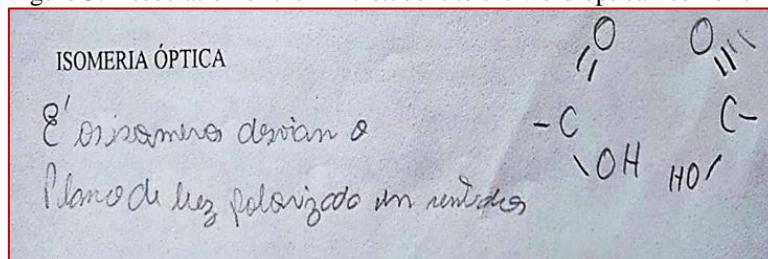 ISOMERIA ÓPTICA
É os isomeros desviam o
Plano de luz polarizado em sentidos
O O
- C C -
OH HO